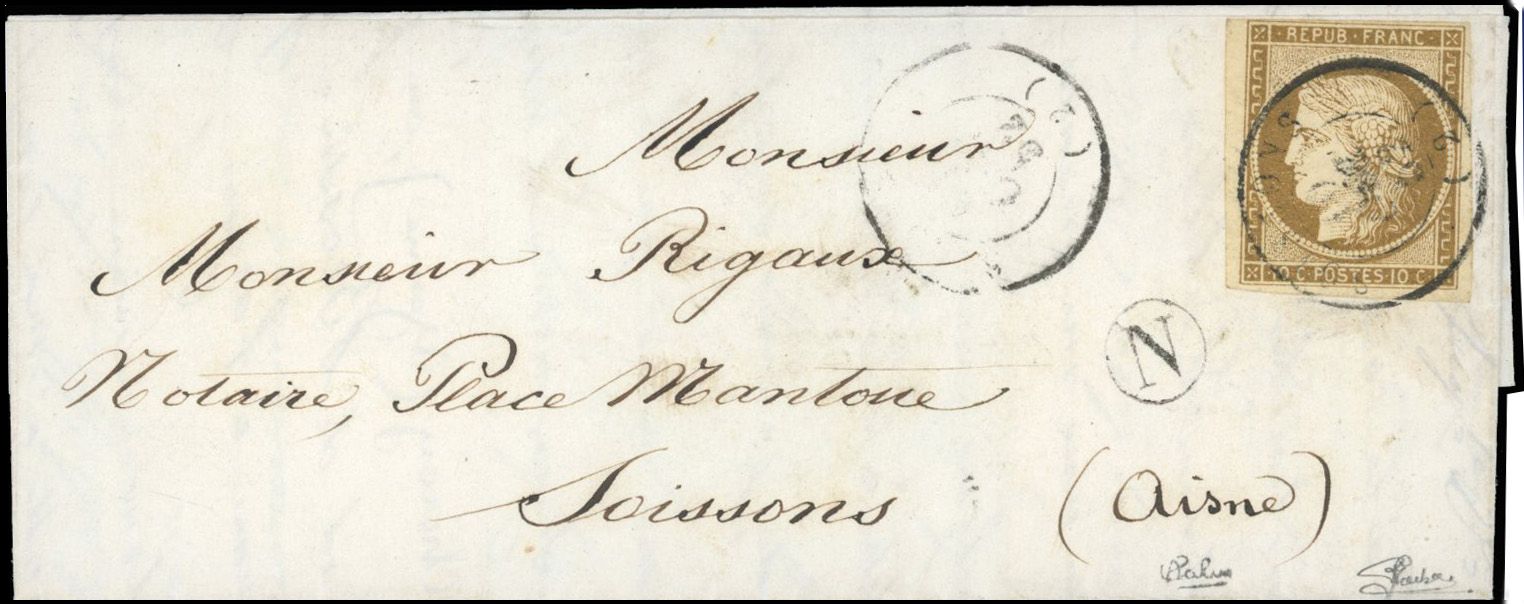 REPUB · FRANC ·
(2)
(2)
C · POSTES · 10 C
Monsieur
Monsieur Rigaux
N
Notaire, Place Mantoue
Soissons (Aisne)